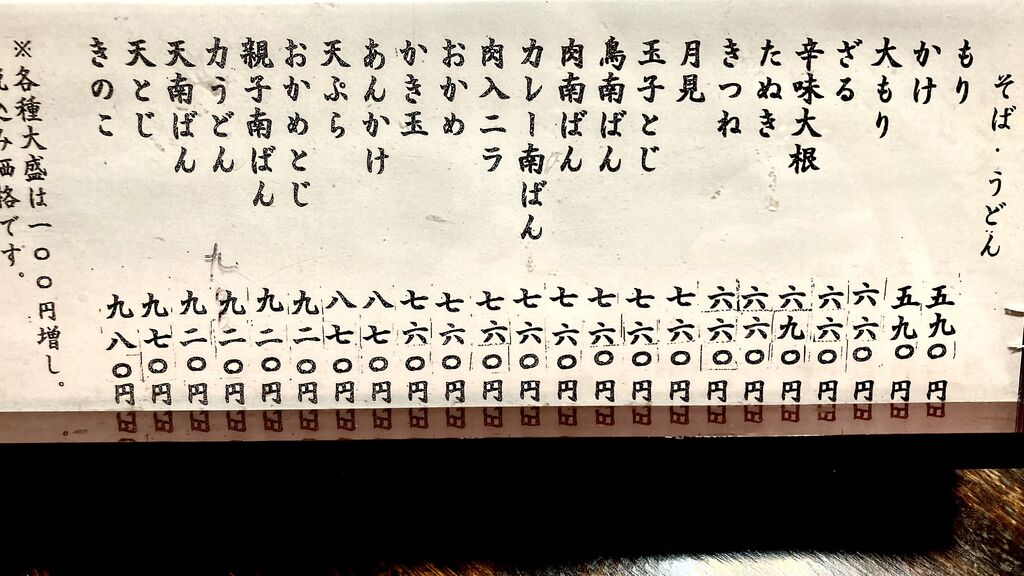 そば・うどん
もり 五九〇円
かけ 五九〇円
大もり 六六〇円
ざる 六六〇円
辛味大根 六九〇円
たぬき 六六〇円
きつね 六六〇円
月見 七六〇円
玉子とじ 七六〇円
鳥南ばん 七六〇円
肉南ばん 七六〇円
カレー南ばん 七六〇円
肉入ニラ 七六〇円
おかめ 七六〇円
かき玉 七六〇円
あんかけ 八七〇円
天ぷら 八七〇円
おかめとじ 九二〇円
親子南ばん 九二〇円
力うどん 九二〇円
天南ばん 九二〇円
天とじ 九七〇円
きのこ 九八〇円
※各種大盛は一〇〇円増し。
込み価格です。